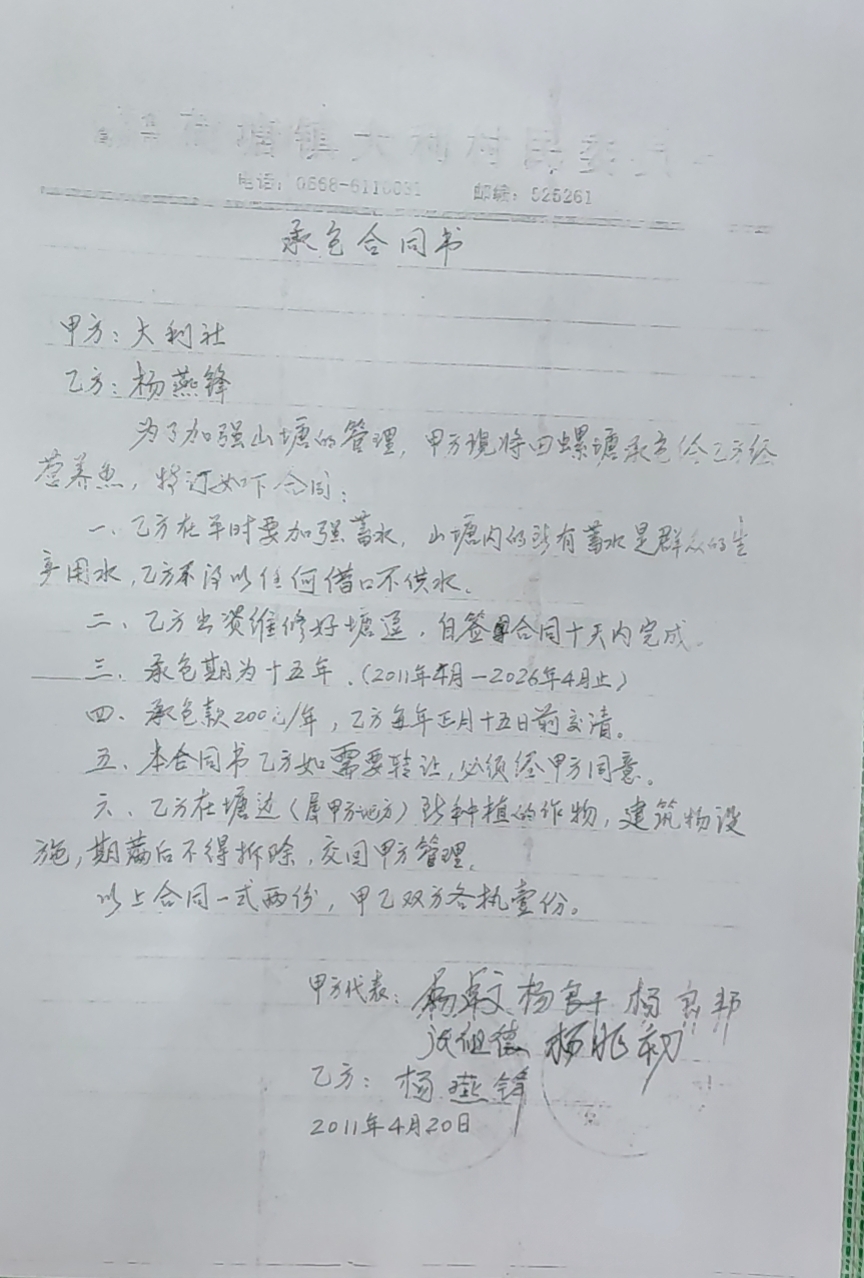 塘镇大利村民委员
电话：0668-6110031 邮编：525261
承包合同书
甲方：大利社
乙方：杨燕锋
为了加强山塘的管理，甲方现将田螺塘承包给乙方经
营养鱼，特订如下合同：
一、乙方在平时要加强蓄水，山塘内的所有蓄水是群众的生
产用水，乙方不得以任何借口不供水。
二、乙方出资维修好塘涵，自签合同十天内完成。
三、承包期为十五年。（2011年4月—2026年4月止）
四、承包款200元/年，乙方每年正月十五日前交清。
五、本合同书乙方如需要转让，必须经甲方同意。
六、乙方在塘边（属甲方地方）所种植的作物，建筑物设
施，期满后不得拆除，交回甲方管理。
以上合同一式两份，甲乙双方各执壹份。
甲方代表：杨 文 杨良 杨 邦
祖德 杨兆初
乙方：杨燕锋
2011年4月20日